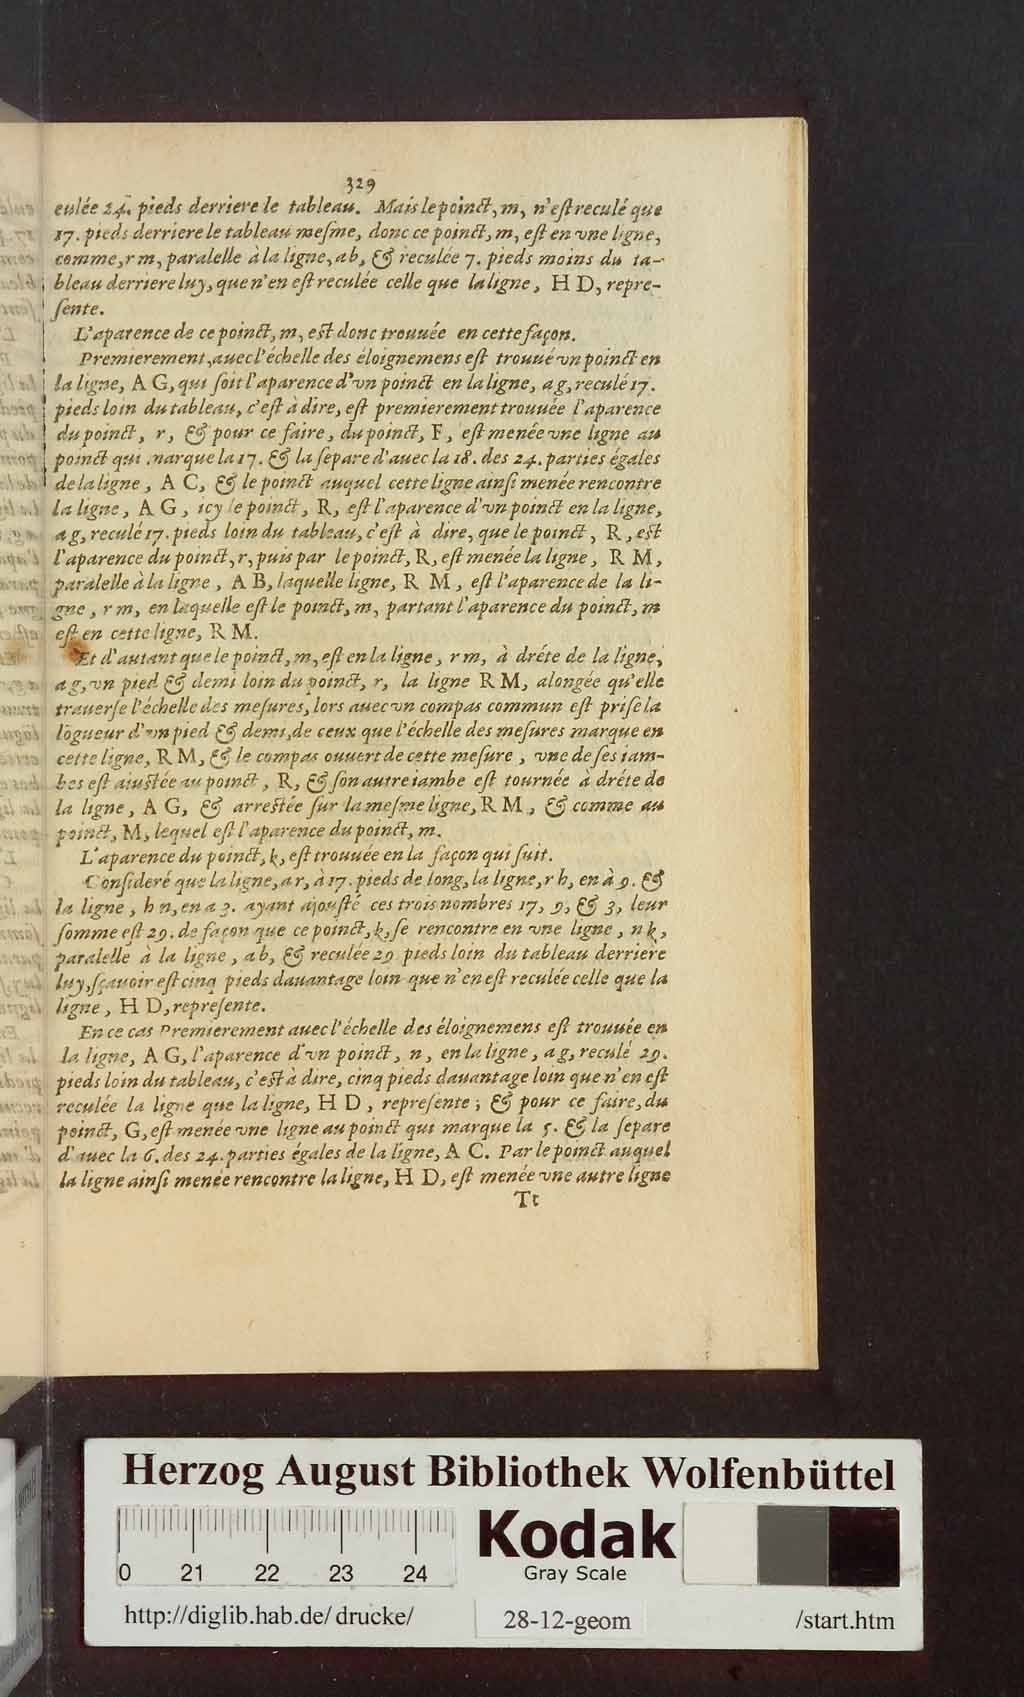 329
culée 24. pieds derriere le tableau. Mais le poinct, m, n'est reculé que
17. pieds derriere le tableau mesme, donc ce poinct, m, est en vne ligne,
comme, r m, paralelle à la ligne, ab, & reculée 7. pieds moins du ta-
bleau derriere luy, que n'en est reculée celle que la ligne, H D, repre-
sente.
L'aparence de ce poinct, m, est donc trouuée en cette façon.
Premierement, auec l'échelle des éloignemens est trouué vn poinct en
la ligne, A G, qui soit l'aparence d'vn poinct en la ligne, a g, reculé 17.
pieds loin du tableau, c'est à dire, est premierement trouuée l'aparence
du poinct, r, & pour ce faire, du poinct, F, est menée vne ligne au
poinct qui marque la 17. & la separe d'auec la 18. des 24. parties égales
de la ligne, A C, & le poinct auquel cette ligne ainsi menée rencontre
la ligne, A G, icy le poinct, R, est l'aparence d'vn poinct en la ligne,
a g, reculé 17. pieds loin du tableau, c'est à dire, que le poinct, R, est
l'aparence du poinct, r, puis par le poinct, R, est menée la ligne, R M,
paralelle à la ligne, A B, laquelle ligne, R M, est l'aparence de la li-
gne, r m, en laquelle est le poinct, m, partant l'aparence du poinct, m
est en cette ligne, R M.
Et d'autant que le poinct, m, est en la ligne, r m, à dréte de la ligne,
a g, vn pied & demi loin du poinct, r, la ligne R M, alongée qu'elle
trauerse l'échelle des mesures, lors auec vn compas commun est prise la
lõgueur d'vn pied & demi, de ceux que l'échelle des mesures marque en
cette ligne, R M, & le compas ouuert de cette mesure, vne de ses iam-
bes est aiustée au poinct, R, & son autre iambe est tournée à dréte de
la ligne, A G, & arrestée sur la mesme ligne, R M, & comme au
poinct, M, lequel est l'aparence du poinct, m.
L'aparence du poinct, k, est trouuée en la façon qui suit.
Consideré que la ligne, a r, à 17. pieds de long, la ligne, r h, en à 9. &
la ligne, h n, en a 3. ayant ajousté ces trois nombres 17, 9, & 3, leur
somme est 29. de façon que ce poinct, k, se rencontre en vne ligne, n k,
paralelle à la ligne, ab, & reculée 29 pieds loin du tableau derriere
luy, sçauoir est cinq pieds dauantage loin que n'en est reculée celle que la
ligne, H D, represente.
En ce cas Premierement auec l'échelle des éloignemens est trouuée en
la ligne, A G, l'aparence d'vn poinct, n, en la ligne, a g, reculé 29.
pieds loin du tableau, c'est à dire, cinq pieds dauantage loin que n'en est
reculée la ligne que la ligne, H D, represente; & pour ce faire, du
poinct, G, est menée vne ligne au poinct qui marque la 5. & la separe
d'auec la 6. des 24. parties égales de la ligne, A C. Par le poinct auquel
la ligne ainsi menée rencontre la ligne, H D, est menée vne autre ligne
Tt
Herzog August Bibliothek Wolfenbüttel
Kodak
Gray Scale
0 21 22 23 24
http://diglib.hab.de/drucke/ 28-12-geom /start.htm